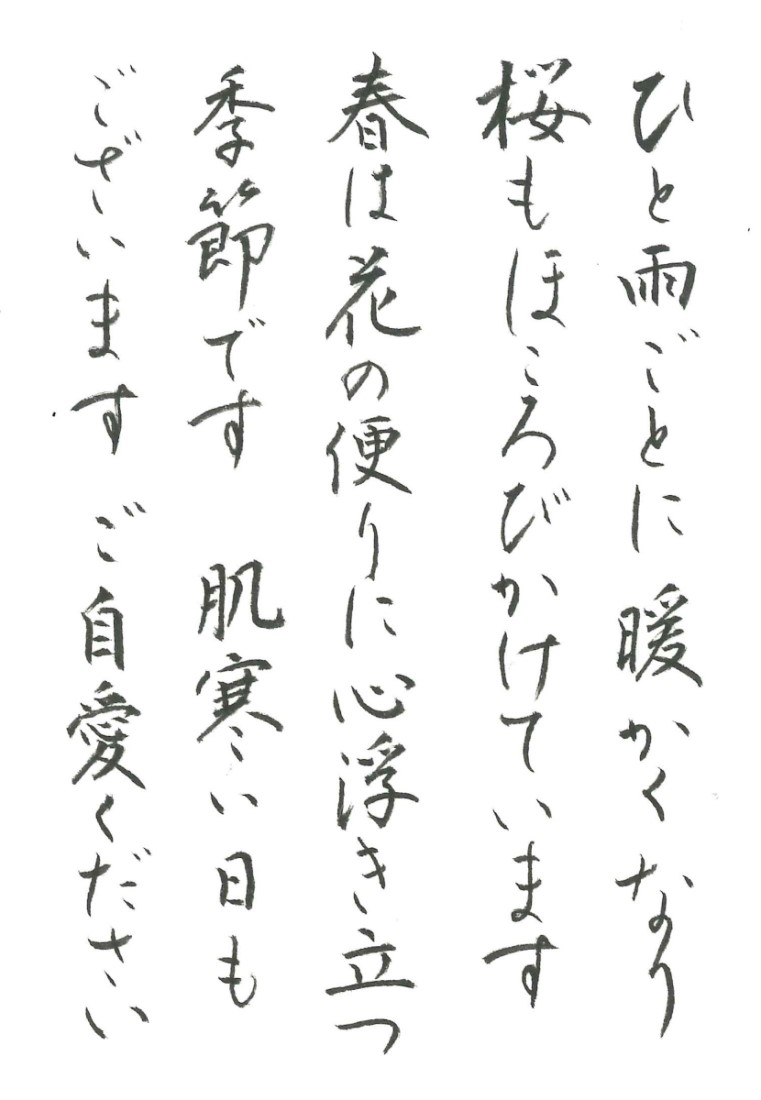 ひと雨ごとに暖かくなり
桜もほころびかけています
春は花の便りに心浮き立つ
季節です　肌寒い日も
ございます　ご自愛ください